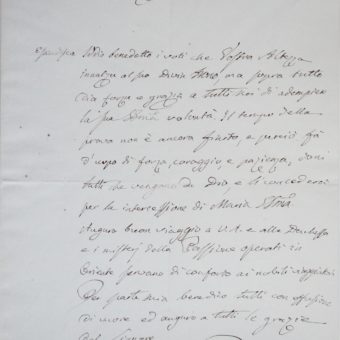 Esaudisca Iddio benedetto i voti che Vostra Altezza
innalza al suo Divin Trono, ma sopra tutto
dia forza e grazia a tutti noi di adempiere
la sua Divina volontà. Il tempo della
prova non è ancora finito, e perciò fa
d'uopo di forza, coraggio, e pazienza, doni
tutti che vengono da Dio e li concederà
per la intercessione di Maria SSma
Auguro buon viaggio a V.A. e alla Duchessa
e i misteri della Passione operati in
Oriente servano di conforto ai nobili viaggiatori
Per parte mia benedico tutti con effusione
di cuore ed auguro a tutti le grazie